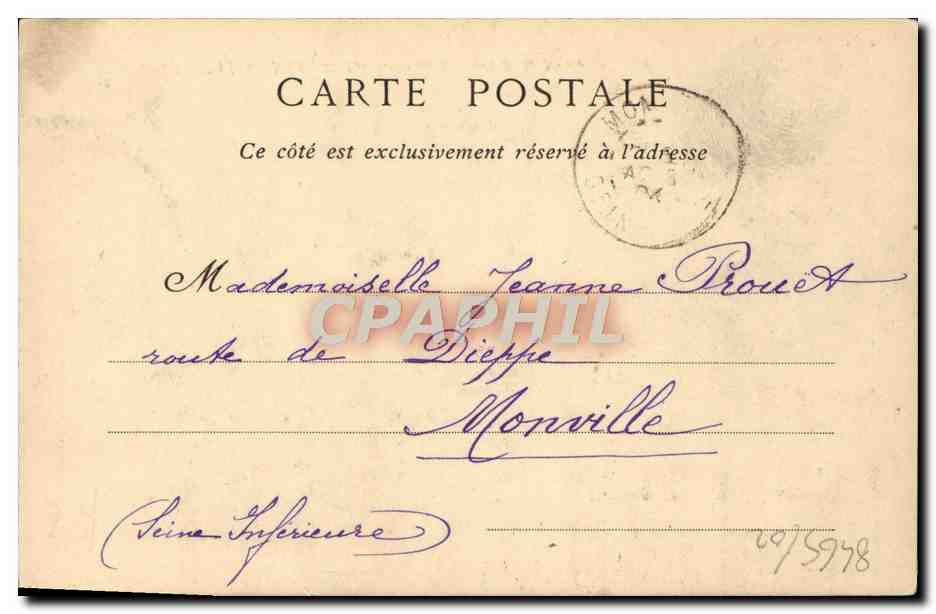 CARTE POSTALE
Ce côté est exclusivement réservé à l'adresse
MON
04
Mademoiselle Jeanne Prouet
CPAPHIL
route de Dieppe
Monville
(Seine Inférieure)